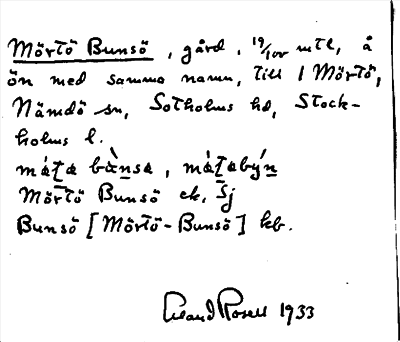 Mörtö Bunsö, gård, 19/100 mtl, å
ön med samma namn, till 1 Mörtö,
Nämdö sn, Sotholms hd, Stock-
holms l.
Mörtö Bunsö ek, Sj
Bunsö [Mörtö-Bunsö] kb.
Rosell 1933